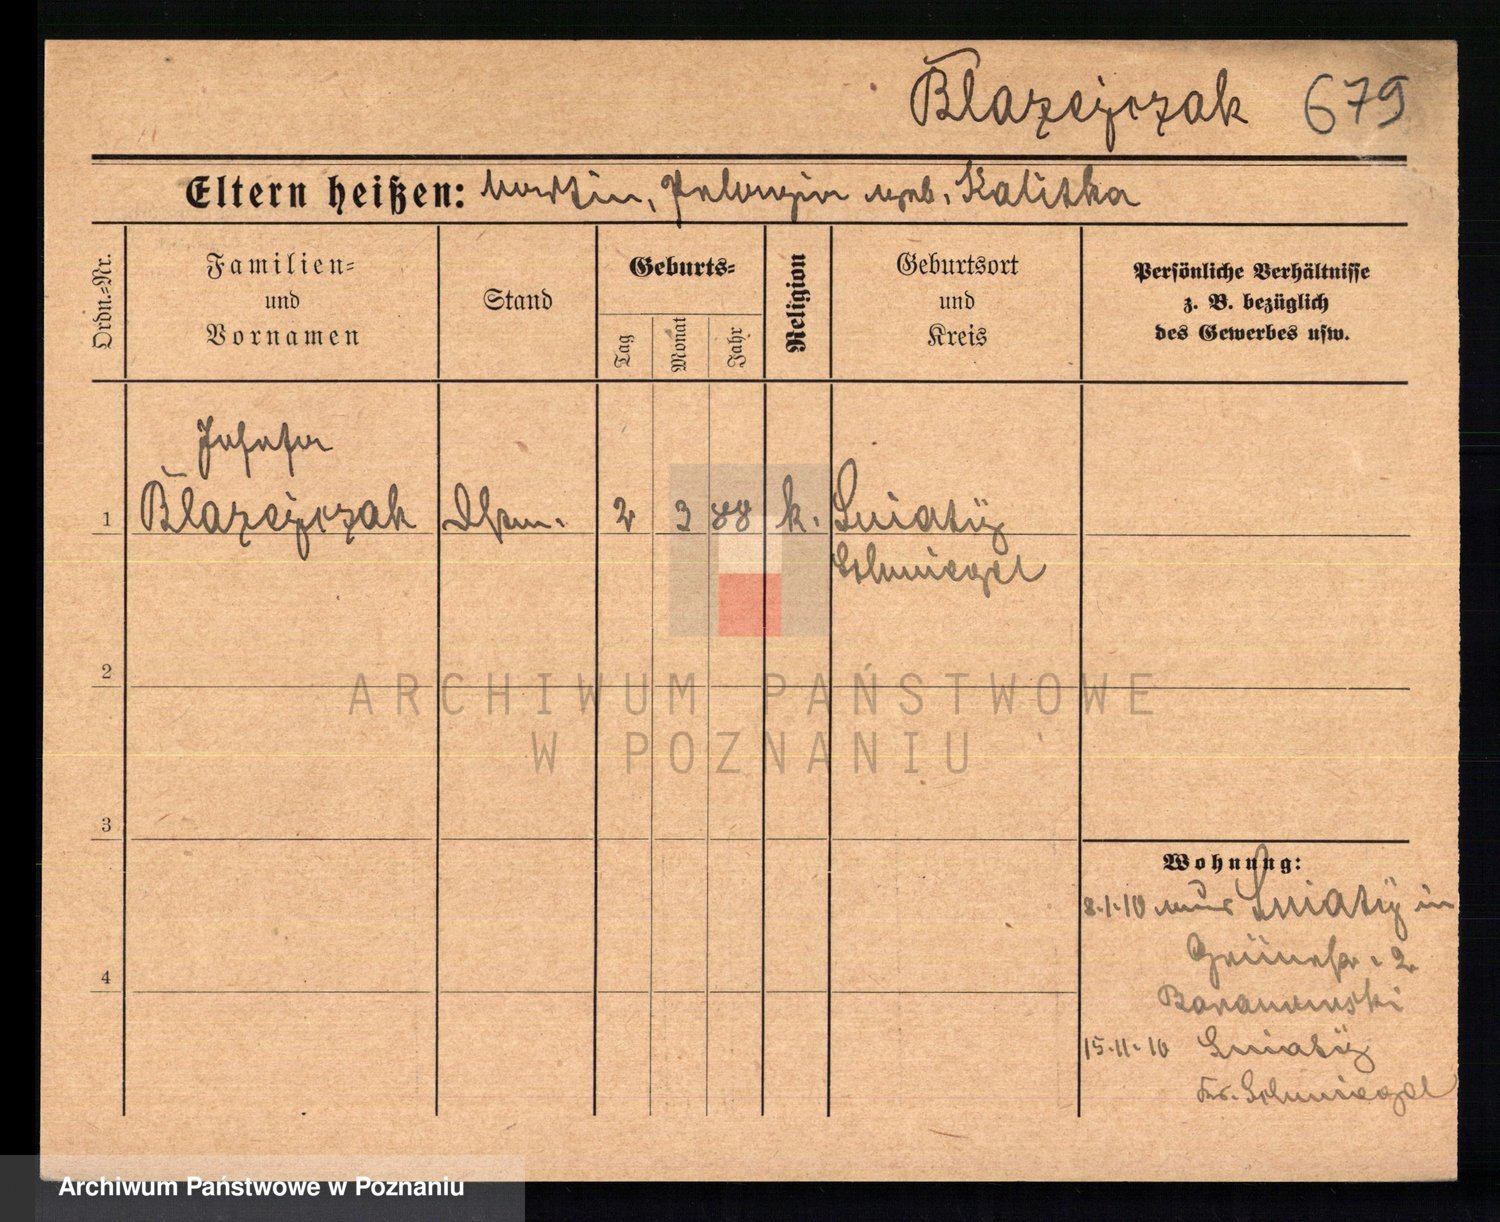 Blazejczak 679
Eltern heißen: Martin, Pelagia geb. Kalitka
Ordn.=Nr.
Familien=
und
Vornamen
Stand
Geburts=
Tag
Monat
Jahr
Religion
Geburtsort
und
Kreis
Persönliche Verhältnisse
z. B. bezüglich
des Gewerbes usw.
Josefa
1 Blazejczak 2 3 88 k. Sniatÿ
Schmiegel
2
ARCHIWUM PAŃSTWOWE
W POZNANIU
3
Wohnung:
8.1.10 aus Sniatÿ in
Grünestr. 2
4
Baranowski
15.11.10 Sniatÿ
Kr. Schmiegel
Archiwum Państwowe w Poznaniu